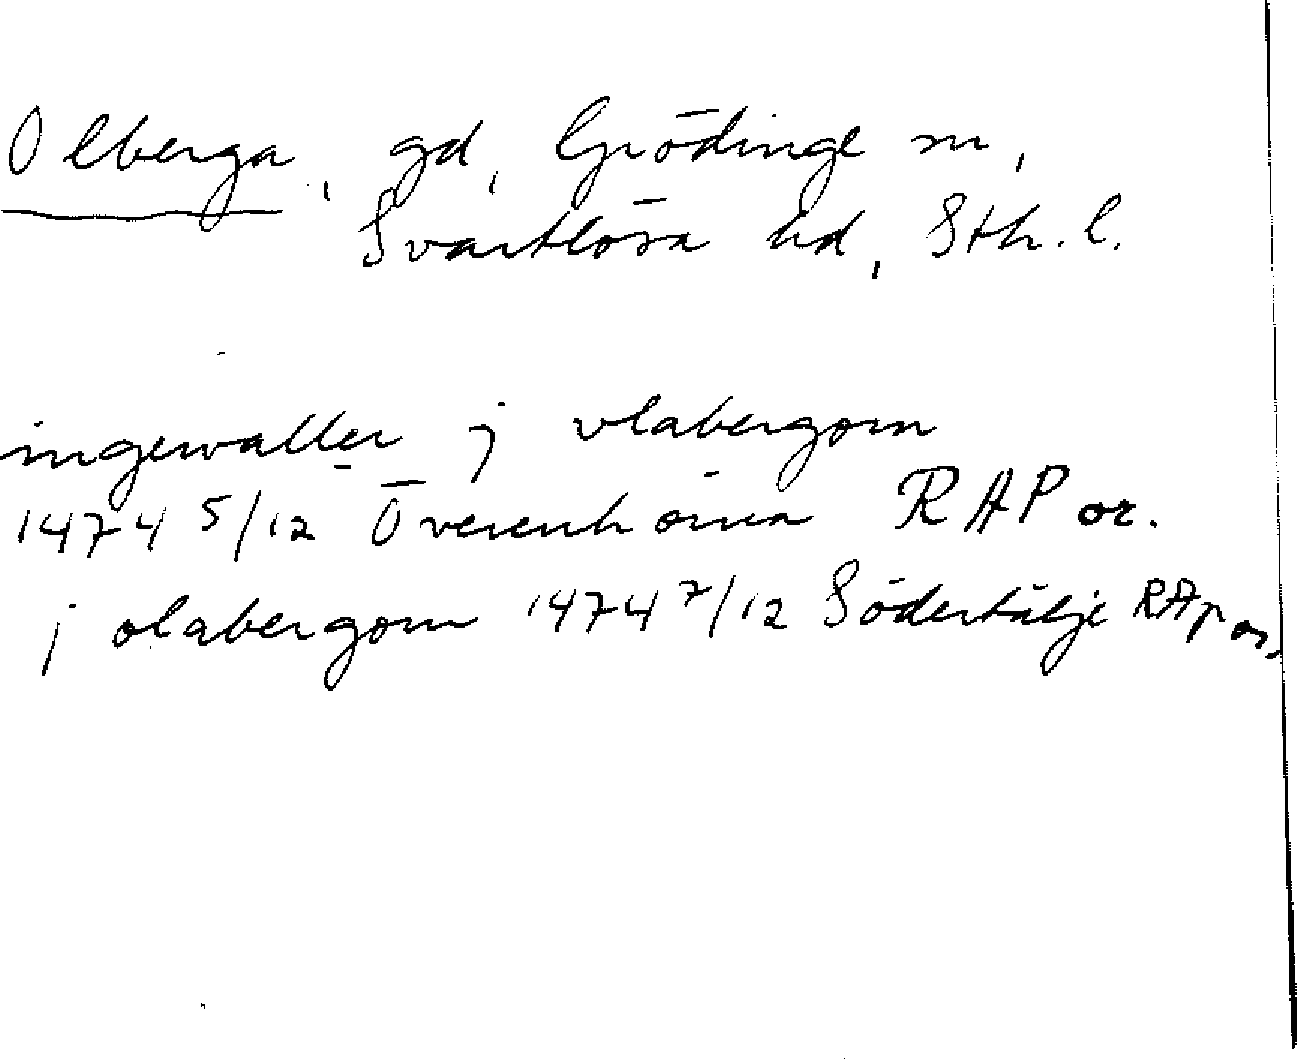 Olberga, gd, Grödinge sn,
Svartlösa hd, Sth. l.
ingewaller j vlabergom
1474 5/12 Överenhörna RAP or.
j olabergom 1474 7/12 Södertälje RAp or.